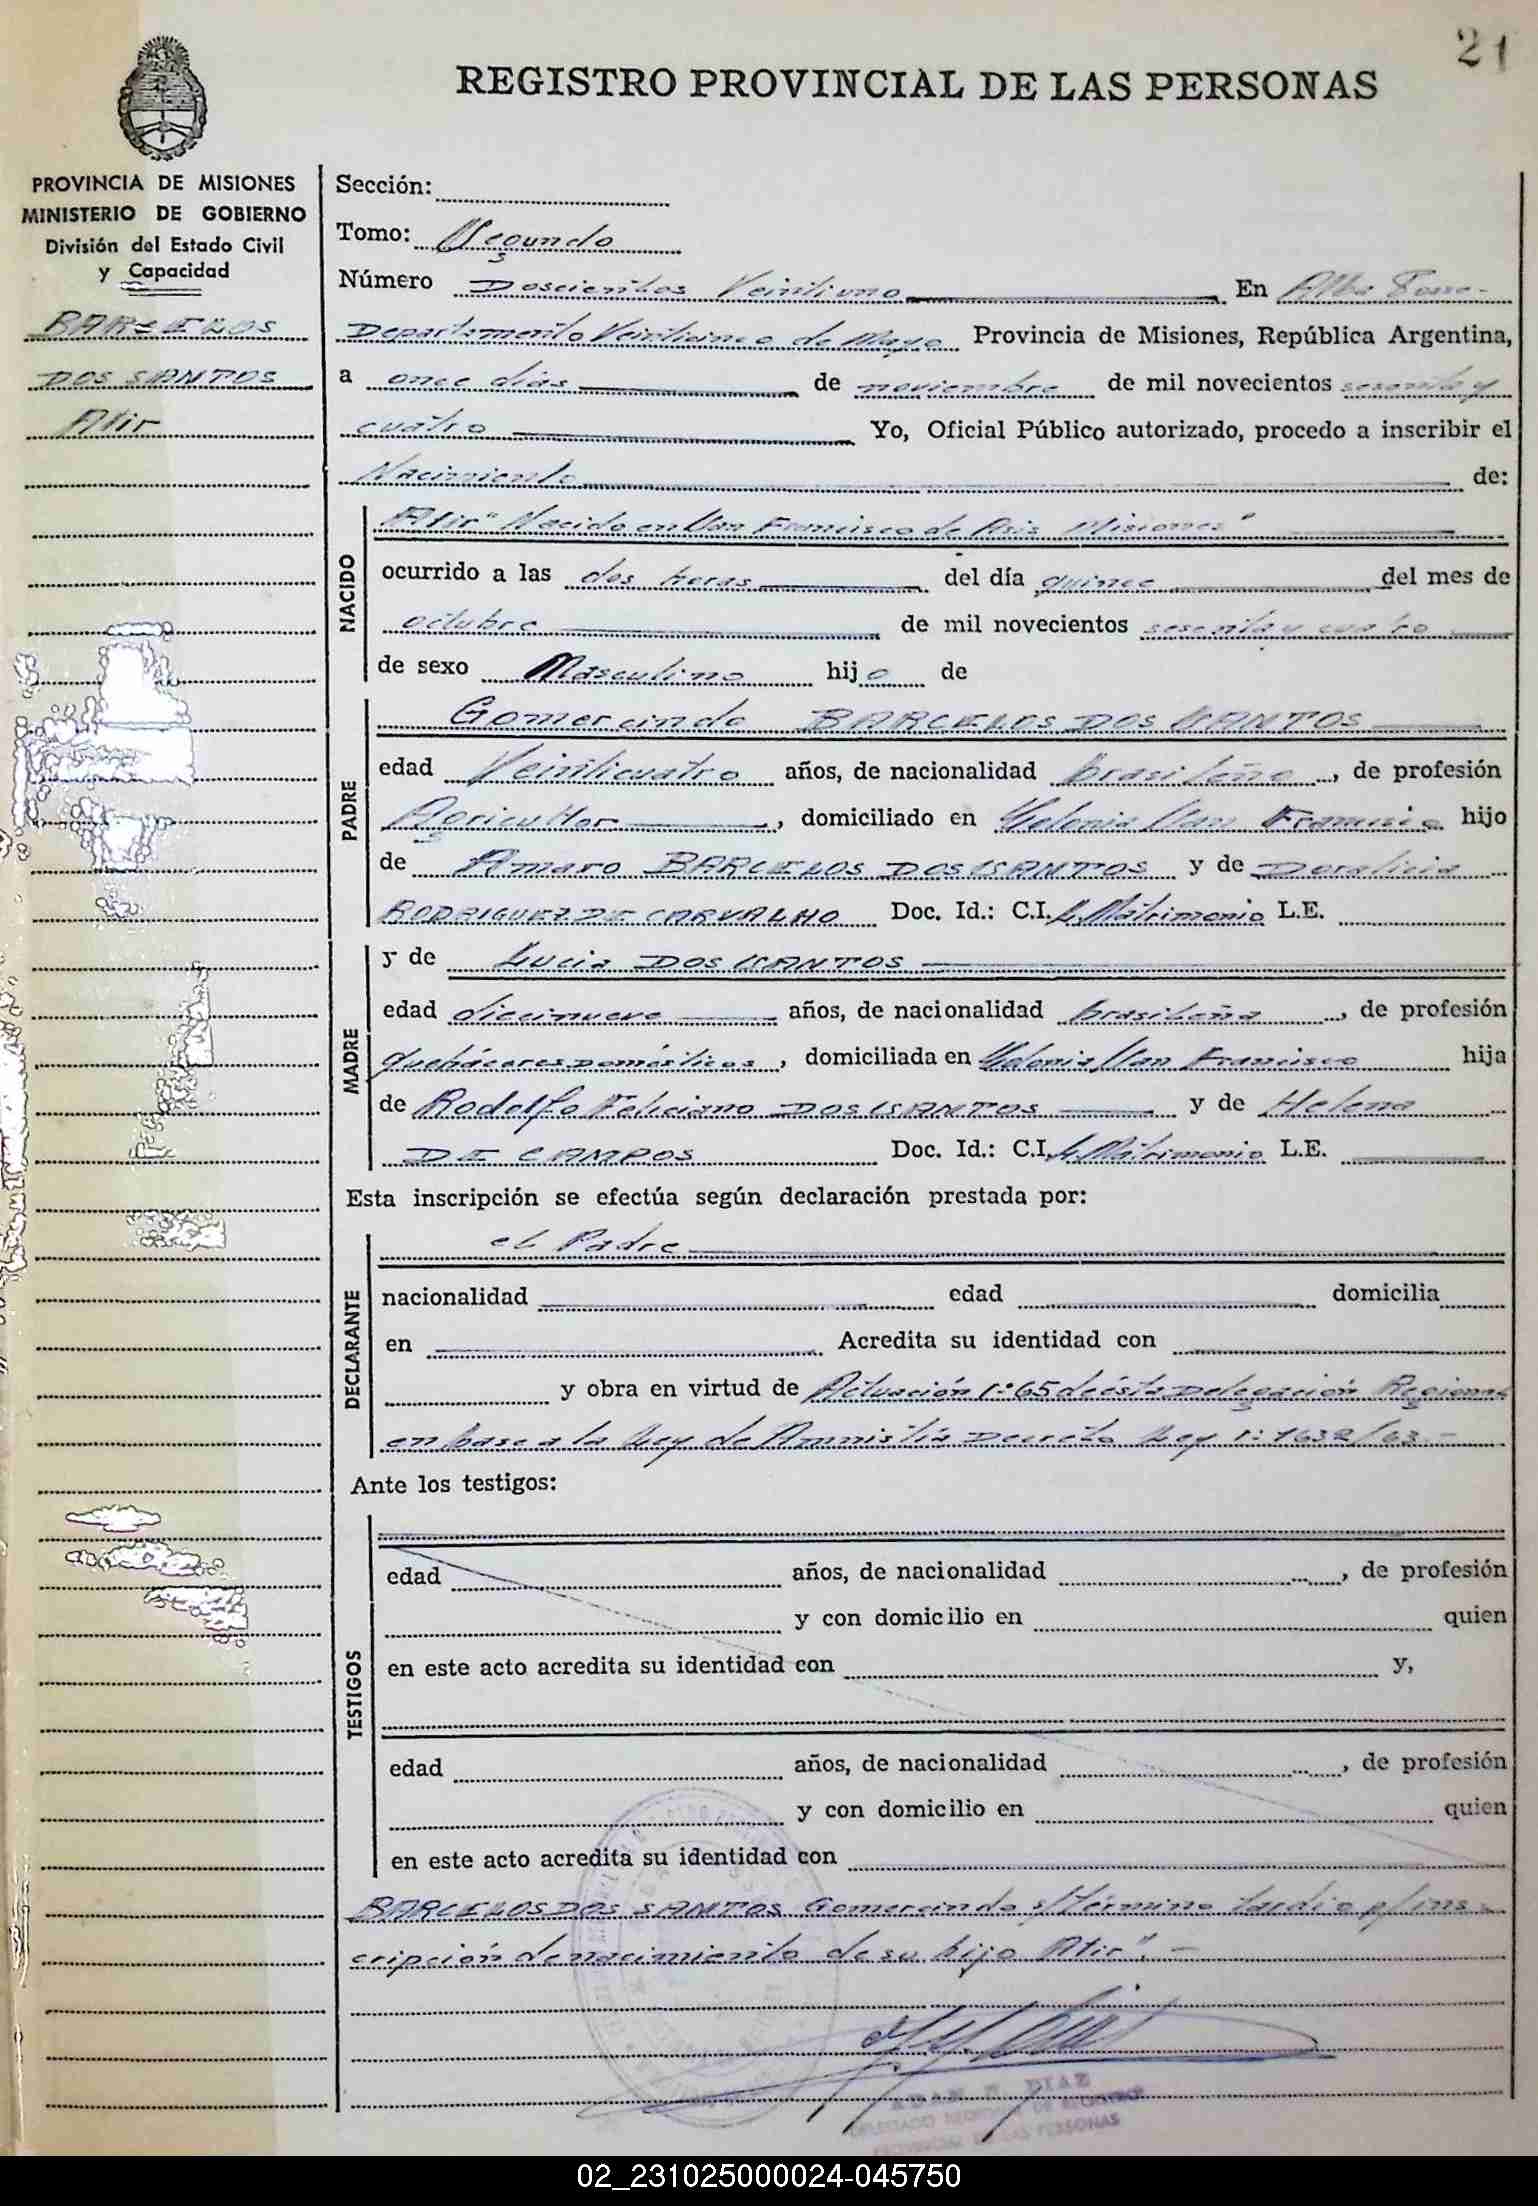 21
REGISTRO PROVINCIAL DE LAS PERSONAS
PROVINCIA DE MISIONES
MINISTERIO DE GOBIERNO
División del Estado Civil
y Capacidad
BARCELOS
DOS SANTOS
Atir
Sección:
Tomo: Segundo
Número Doscientos Veintiuno En Alba Posse-
Departamento Veinticinco de Mayo Provincia de Misiones, República Argentina,
a once días de noviembre de mil novecientos sesenta y
cuatro Yo, Oficial Público autorizado, procedo a inscribir el
Nacimiento de:
NACIDO
Atir" Nacido en San Francisco de Asis Misiones"
ocurrido a las dos horas del día quince del mes de
octubre de mil novecientos sesenta y cuatro
de sexo Masculino hijo de
PADRE
Gomercindo BARCELOS DOS SANTOS
edad Veinticuatro años, de nacionalidad brasileño, de profesión
Agricultor, domiciliado en Colonia San Francisco hijo
de Amaro BARCELOS DOS SANTOS y de Doralicia
RODRIGUEZ DE CARVALHO Doc. Id.: C.I. L. Matrimonio L.E.
MADRE
y de Lucia DOS SANTOS
edad diecinueve años, de nacionalidad brasileña, de profesión
quehaceres domésticos, domiciliada en Colonia San Francisco hija
de Rodolfo Feliciano DOS SANTOS y de Helena
DE CAMPOS Doc. Id.: C.I. L. Matrimonio L.E.
Esta inscripción se efectúa según declaración prestada por:
DECLARANTE
el Padre
nacionalidad edad domicilia
en Acredita su identidad con
y obra en virtud de Actuación 1:65 de ésta Delegación Regional
en base a la Ley de Amnistía Decreto Ley 1:1632/63.-
Ante los testigos:
TESTIGOS
edad años, de nacionalidad , de profesión
y con domicilio en quien
en este acto acredita su identidad con y,
edad años, de nacionalidad , de profesión
y con domicilio en quien
en este acto acredita su identidad con
BARCELOS DOS SANTOS Gomercindo s/término tardio p/ins-
cripción de nacimiento de su hijo Atir".-
DIAZ
DELEGADO REGIONAL DE REGISTRO
PROVINCIAL DE LAS PERSONAS
02_231025000024-045750